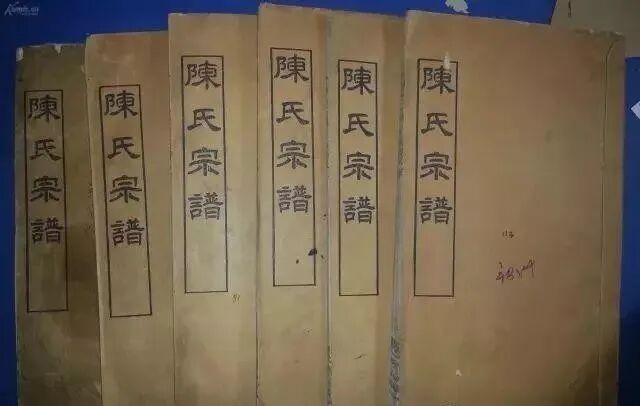 陳氏宗譜
陳氏宗譜
陳氏宗譜
陳氏宗譜
陳氏宗譜
陳氏宗譜